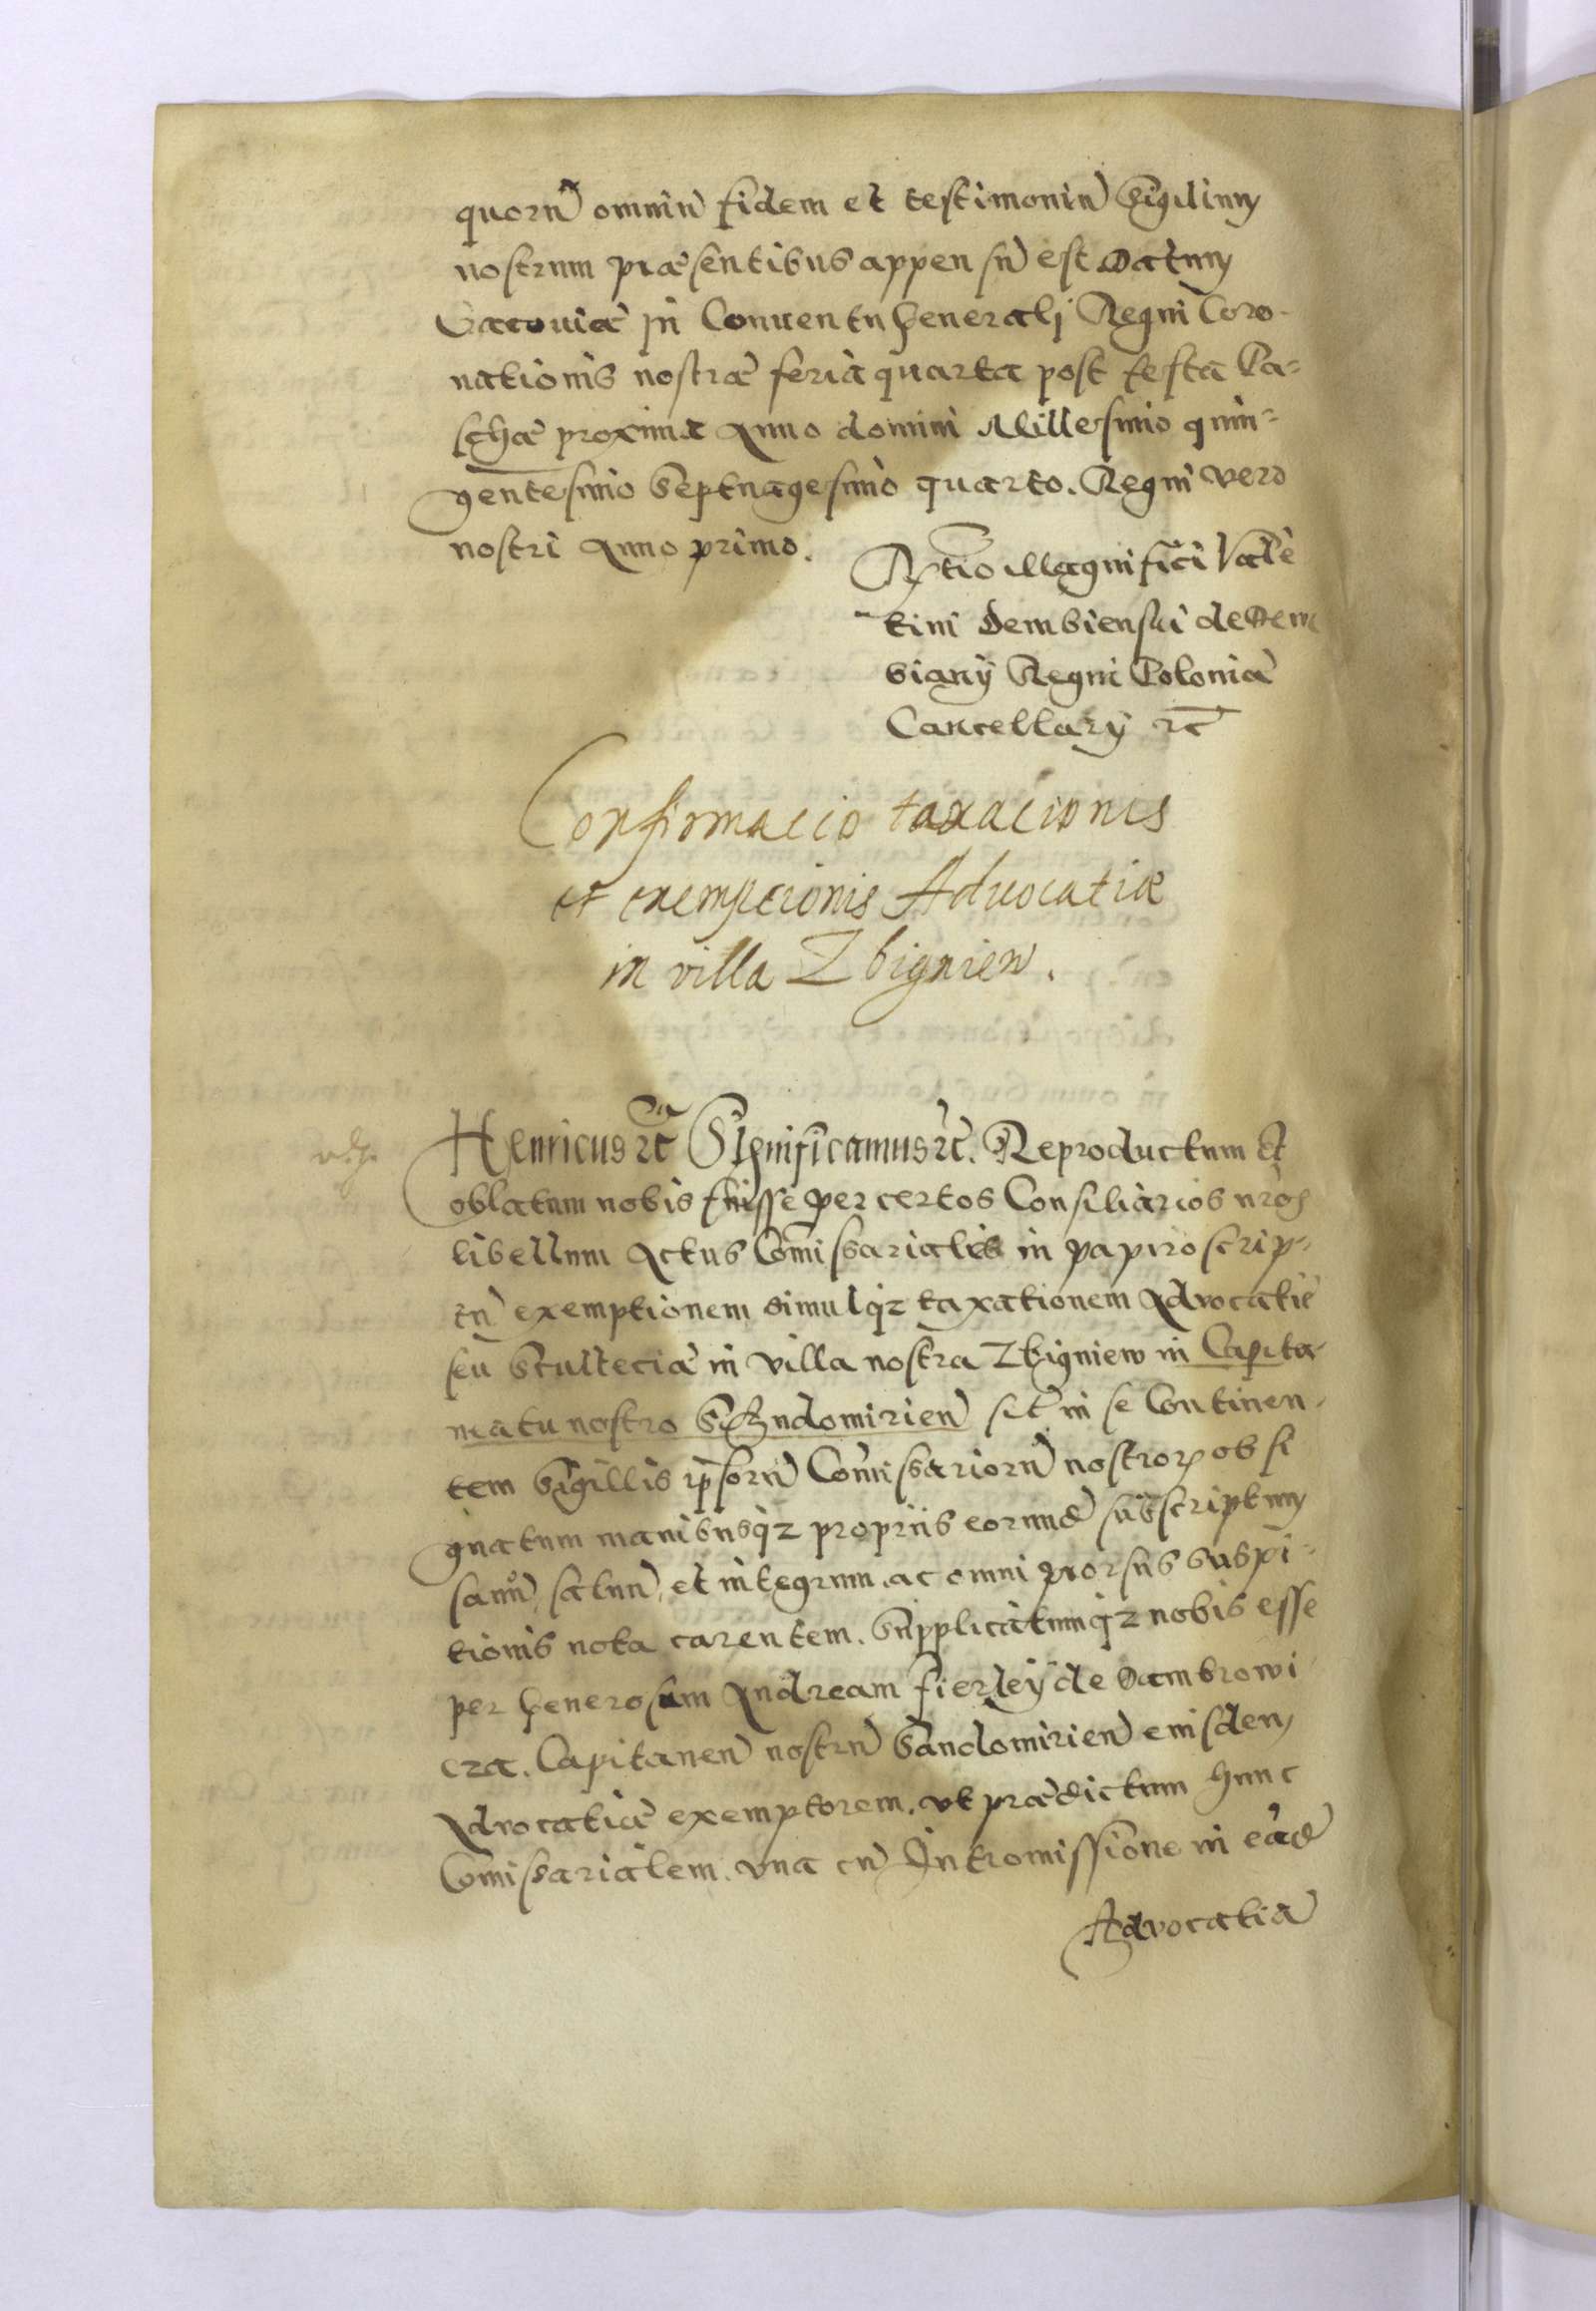 quorū omniū fidem et testimoniū Sigillum
nostrum præsentibus appensū est Datum
Cracoviæ in Conventu Generali Regni Coro-
nationis nostræ feria quarta post festa Pa-
schæ proxima Anno domini Millesimo quin-
gentesimo Septuagesimo quarto. Regni vero
nostri Anno primo.
Rtio Magnifici Valē
tini Dembienski de Dem
biany Regni Poloniæ
Cancellarÿ ꝛc
Confirmacio taxacionis
et exempcionis Advocatiæ
in villa Zbigniew.
Henricus ꝛc Significamus ꝛc. Reproductum et
oblatum nobis fuisse per certos Consiliarios nr̄oꝝ
libellum Actus Com̄issarialis in papiro scrip-
tū exemptionem simulqꝫ taxationem Advocatiē
seu Scultetiæ in villa nostra Zbigniew in Capita-
neatu nostro Sandomirien̄ sit̄ in se Continen-
tem Sigillis ip̄sorū Com̄issariorū nostroꝝ obsi
gnatum manibusqꝫ propriis eorundē subscriptum
sanū, salvū, et integrum. ac omni prorsus suspi-
tionis nota carentem. Supplicatumqꝫ nobis esse
per Generosum Andream Fierleÿ de Dambrowi
cza. Capitaneū nostrū Sandomirien̄ eiusdem
Advocatiæ exemptorem. ut prædictum hunc
Com̄issarialem. una cū Intromissione in eādē
Advocatiā